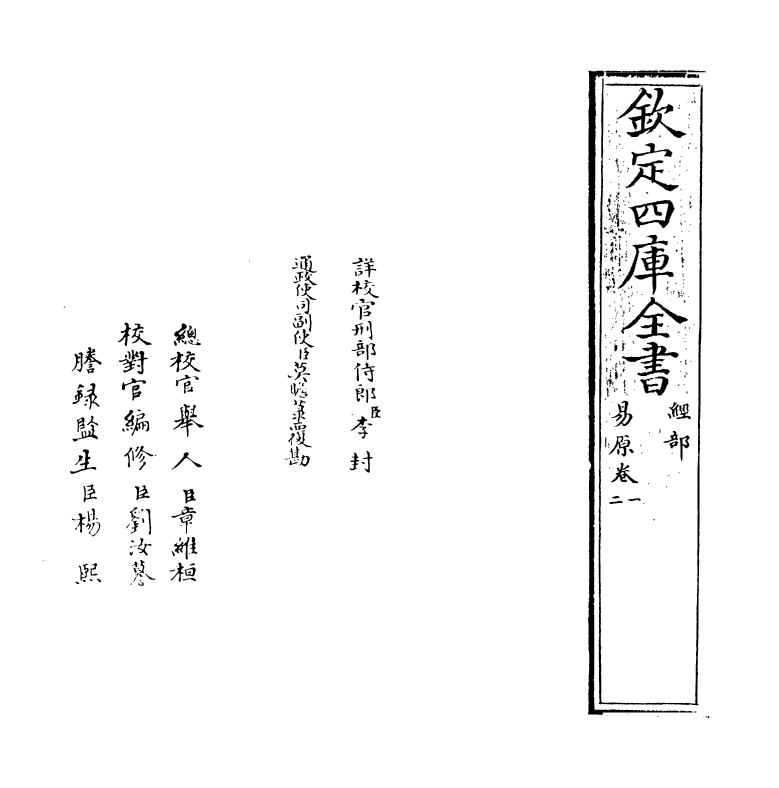 欽定四庫全書
經部
易原卷一二
詳校官刑部侍郎臣李封
通政使司副使臣莫瞻菉覆勘
總校官舉人臣章維桓
校對官編修臣劉汝暮
謄録監生臣楊熙